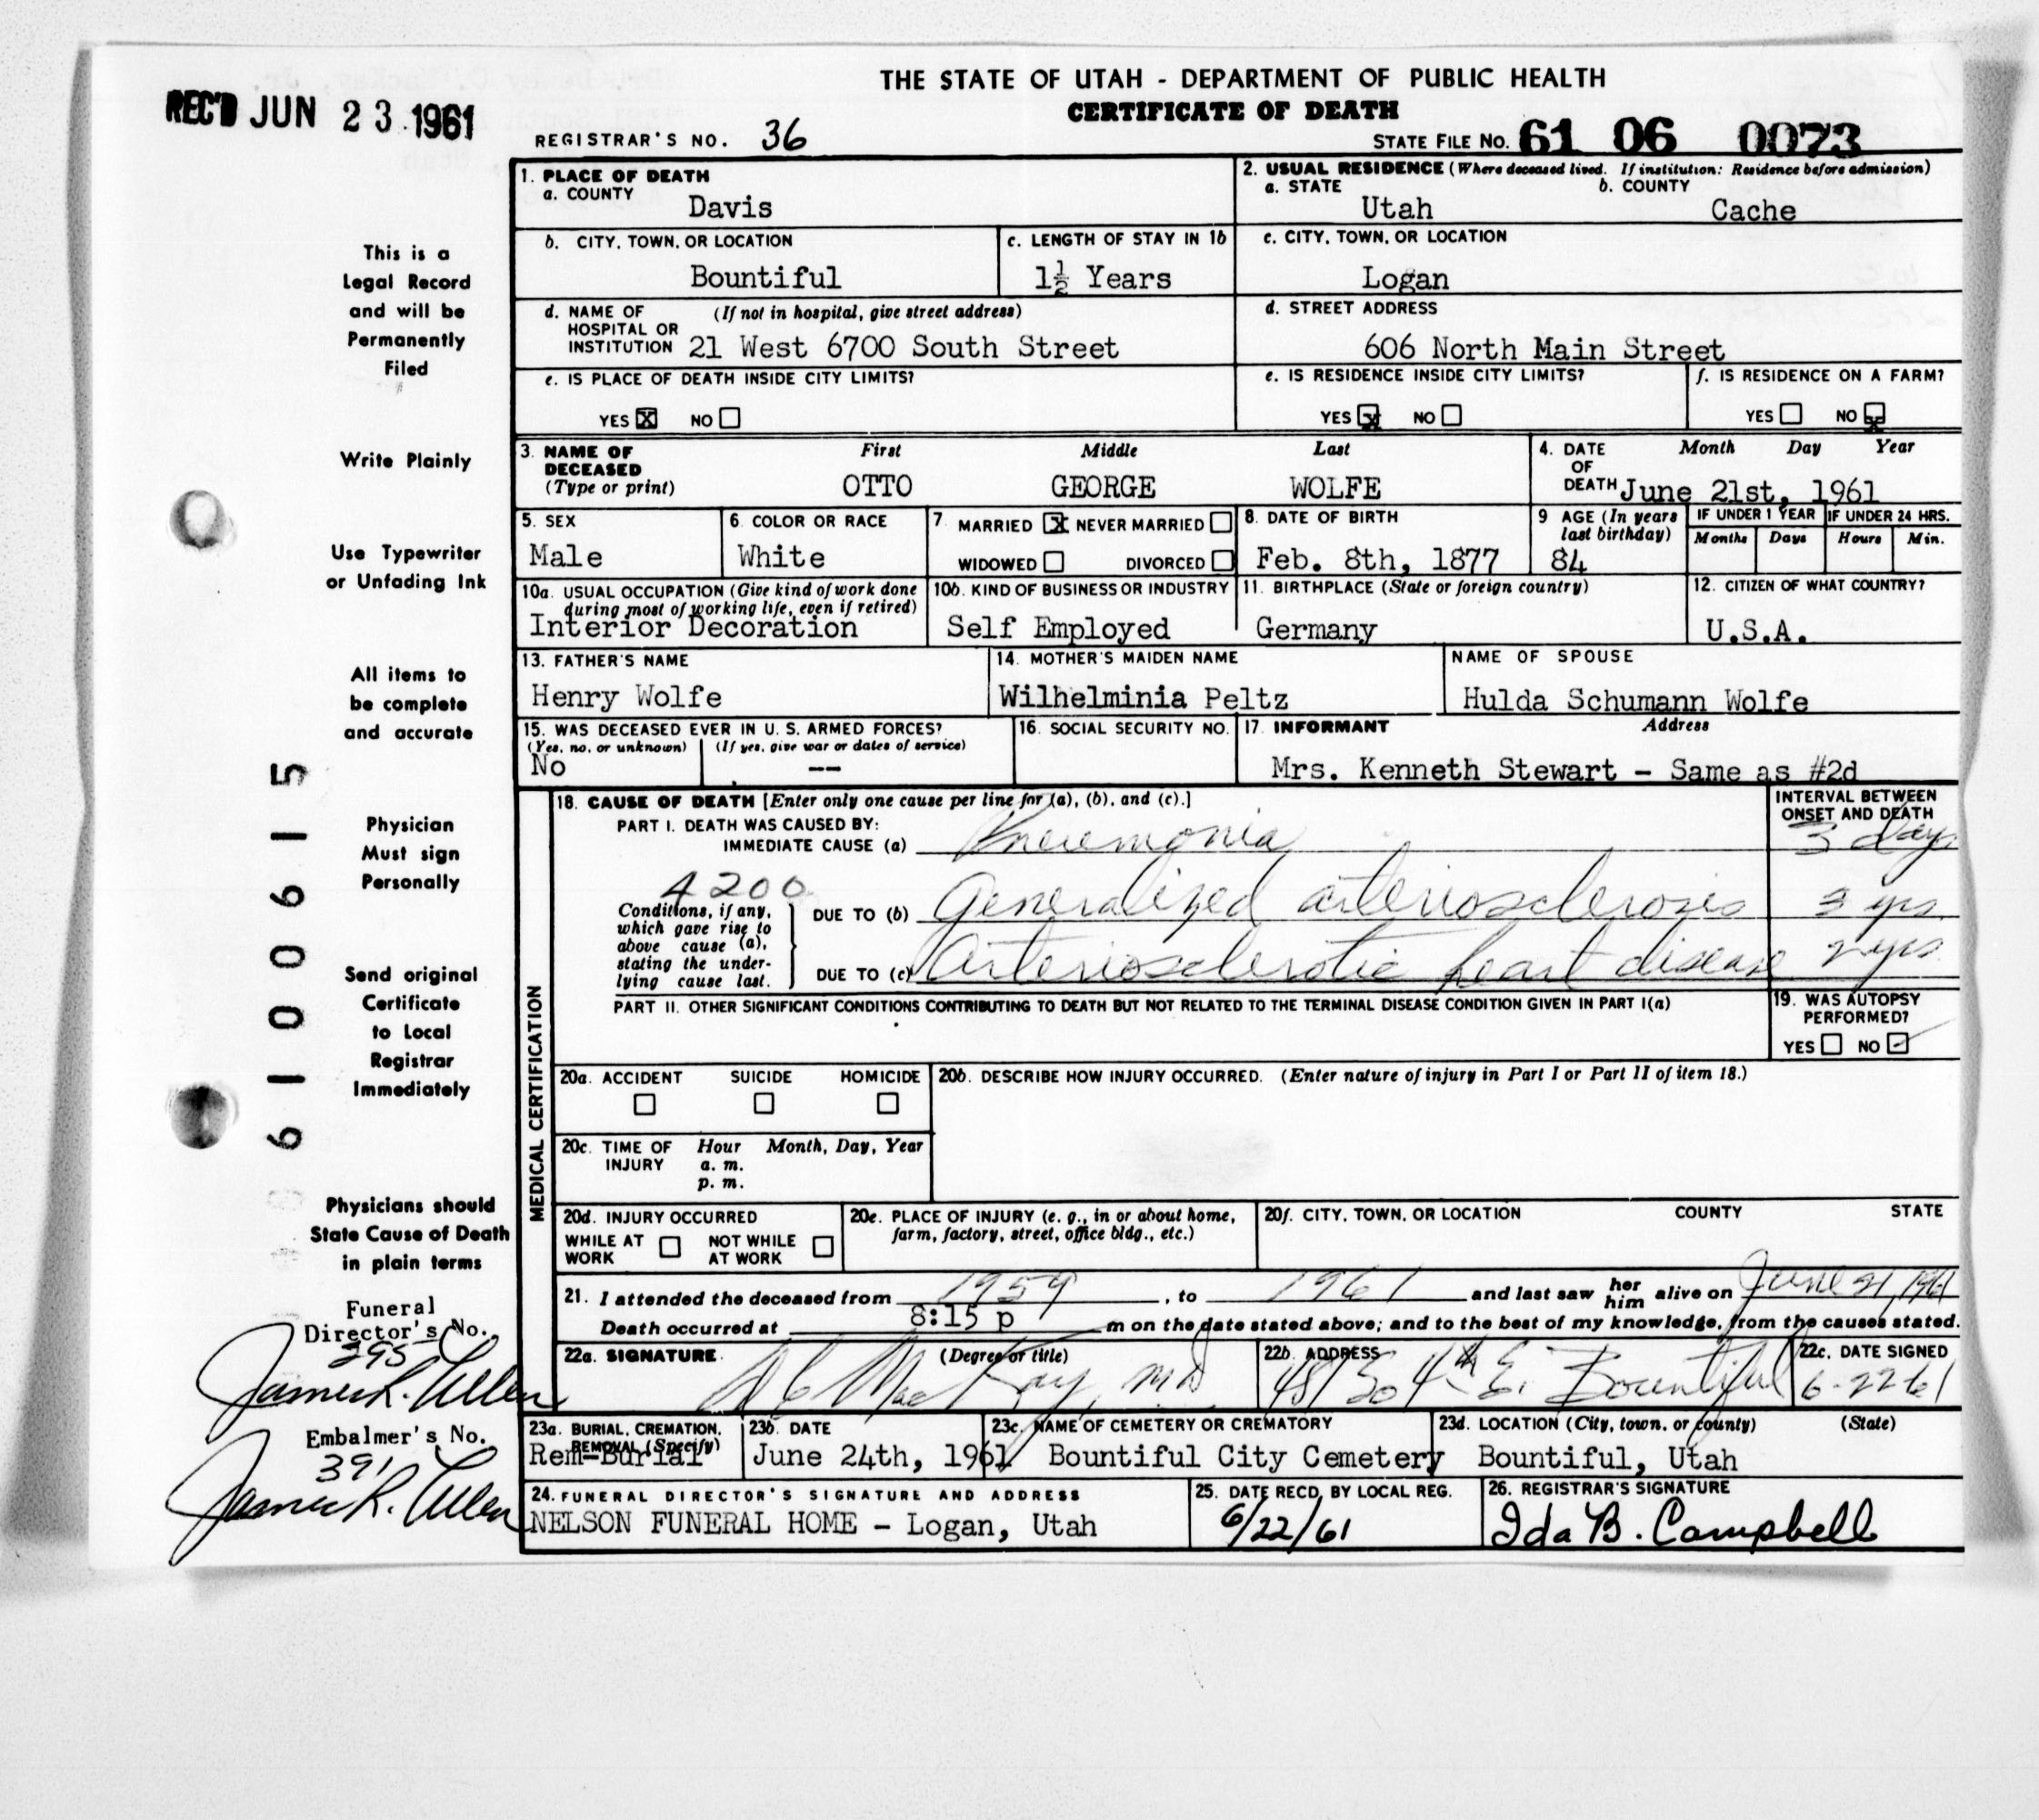 THE STATE OF UTAH - DEPARTMENT OF PUBLIC HEALTH
CERTIFICATE OF DEATH
REC'D JUN 23 1961
REGISTRAR'S NO. 36
STATE FILE NO. 61 06 0073
1. PLACE OF DEATH
a. COUNTY
Davis
2. USUAL RESIDENCE (Where deceased lived. If institution: Residence before admission)
a. STATE b. COUNTY
Utah Cache
b. CITY, TOWN, OR LOCATION
Bountiful
c. LENGTH OF STAY IN 1b
1½ Years
c. CITY, TOWN, OR LOCATION
Logan
d. NAME OF (If not in hospital, give street address)
HOSPITAL OR
INSTITUTION 21 West 6700 South Street
d. STREET ADDRESS
606 North Main Street
e. IS PLACE OF DEATH INSIDE CITY LIMITS?
YES X NO
e. IS RESIDENCE INSIDE CITY LIMITS?
YES X NO
f. IS RESIDENCE ON A FARM?
YES NO X
3. NAME OF DECEASED (Type or print)
First Middle Last
OTTO GEORGE WOLFE
4. DATE OF DEATH Month Day Year
June 21st, 1961
5. SEX
Male
6. COLOR OR RACE
White
7. MARRIED X NEVER MARRIED
WIDOWED DIVORCED
8. DATE OF BIRTH
Feb. 8th, 1877
9 AGE (In years last birthday)
84
IF UNDER 1 YEAR IF UNDER 24 HRS.
Months Days Hours Min.
10a. USUAL OCCUPATION (Give kind of work done
during most of working life, even if retired)
Interior Decoration
10b. KIND OF BUSINESS OR INDUSTRY
Self Employed
11. BIRTHPLACE (State or foreign country)
Germany
12. CITIZEN OF WHAT COUNTRY?
U.S.A.
13. FATHER'S NAME
Henry Wolfe
14. MOTHER'S MAIDEN NAME
Wilhelminia Peltz
NAME OF SPOUSE
Hulda Schumann Wolfe
15. WAS DECEASED EVER IN U. S. ARMED FORCES?
(Yes, no, or unknown) (If yes, give war or dates of service)
No --
16. SOCIAL SECURITY NO.
17. INFORMANT Address
Mrs. Kenneth Stewart - Same as #2d
MEDICAL CERTIFICATION
18. CAUSE OF DEATH [Enter only one cause per line for (a), (b), and (c).]
INTERVAL BETWEEN
ONSET AND DEATH
PART I. DEATH WAS CAUSED BY:
IMMEDIATE CAUSE (a) Pneumonia 3 days
4200
Conditions, if any,
which gave rise to
above cause (a),
stating the under-
lying cause last.
DUE TO (b) Generalized arteriosclerosis 3 yrs.
DUE TO (c) Arteriosclerotic heart disease 2 yrs.
PART II. OTHER SIGNIFICANT CONDITIONS CONTRIBUTING TO DEATH BUT NOT RELATED TO THE TERMINAL DISEASE CONDITION GIVEN IN PART I(a)
19. WAS AUTOPSY
PERFORMED?
YES NO ✓
20a. ACCIDENT SUICIDE HOMICIDE
20b. DESCRIBE HOW INJURY OCCURRED. (Enter nature of injury in Part I or Part II of item 18.)
20c. TIME OF INJURY Hour Month, Day, Year
a. m.
p. m.
20d. INJURY OCCURRED
WHILE AT WORK NOT WHILE AT WORK
20e. PLACE OF INJURY (e. g., in or about home,
farm, factory, street, office bldg., etc.)
20f. CITY, TOWN, OR LOCATION COUNTY STATE
21. I attended the deceased from 1959, to 1961 and last saw her him alive on June 21, 1961
Death occurred at 8:15 p m on the date stated above; and to the best of my knowledge, from the causes stated.
22a. SIGNATURE (Degree or title)
D C MacKay, MD
22b. ADDRESS
481 So 4th E. Bountiful
22c. DATE SIGNED
6-22-61
23a. BURIAL, CREMATION,
REMOVAL (Specify)
Rem-Burial
23b. DATE
June 24th, 1961
23c. NAME OF CEMETERY OR CREMATORY
Bountiful City Cemetery
23d. LOCATION (City, town, or county) (State)
Bountiful, Utah
24. FUNERAL DIRECTOR'S SIGNATURE AND ADDRESS
NELSON FUNERAL HOME - Logan, Utah
25. DATE RECD. BY LOCAL REG.
6/22/61
26. REGISTRAR'S SIGNATURE
Ida B. Campbell
This is a
Legal Record
and will be
Permanently
Filed
Write Plainly
Use Typewriter
or Unfading Ink
All items to
be complete
and accurate
Physician
Must sign
Personally
Send original
Certificate
to Local
Registrar
Immediately
Physicians should
State Cause of Death
in plain terms
Funeral
Director's No.
295
James R. Allen
Embalmer's No.
391
James R. Allen
6100615